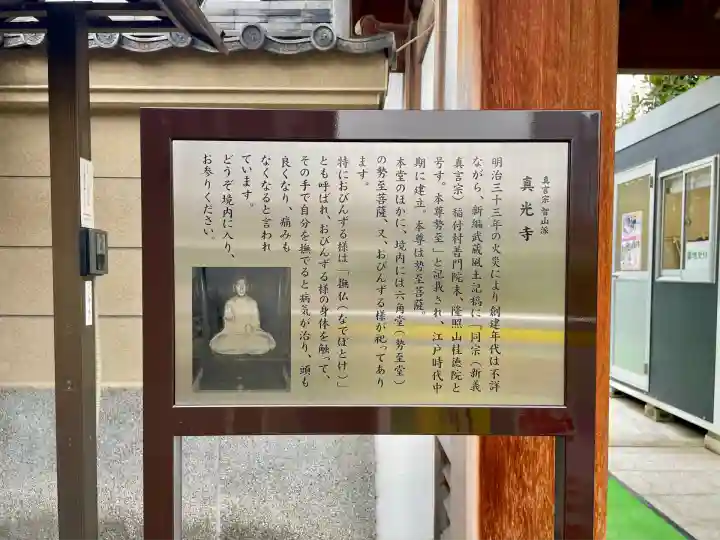 真言宗 智山派
真光寺
明治三十三年の火災により創建年代は不詳
ながら、新編武蔵風土記稿に「同宗(新義
真言宗)稲付村普門院末、隆照山桂徳院と
号す。本尊勢至」と記載され、江戸時代中
期に建立。本尊は勢至菩薩。
本堂のほかに、境内には六角堂(勢至堂)
の勢至菩薩、又、おびんずる様が祀ってあり
ます。
特におびんずる様は「撫仏(なでぼとけ)」
とも呼ばれ、おびんずる様の身体を触って、
その手で自分を撫でると病気が治り、頭も
良くなり、痛みも
なくなると言われ
ています。
どうぞ境内に入り、
お参りください。